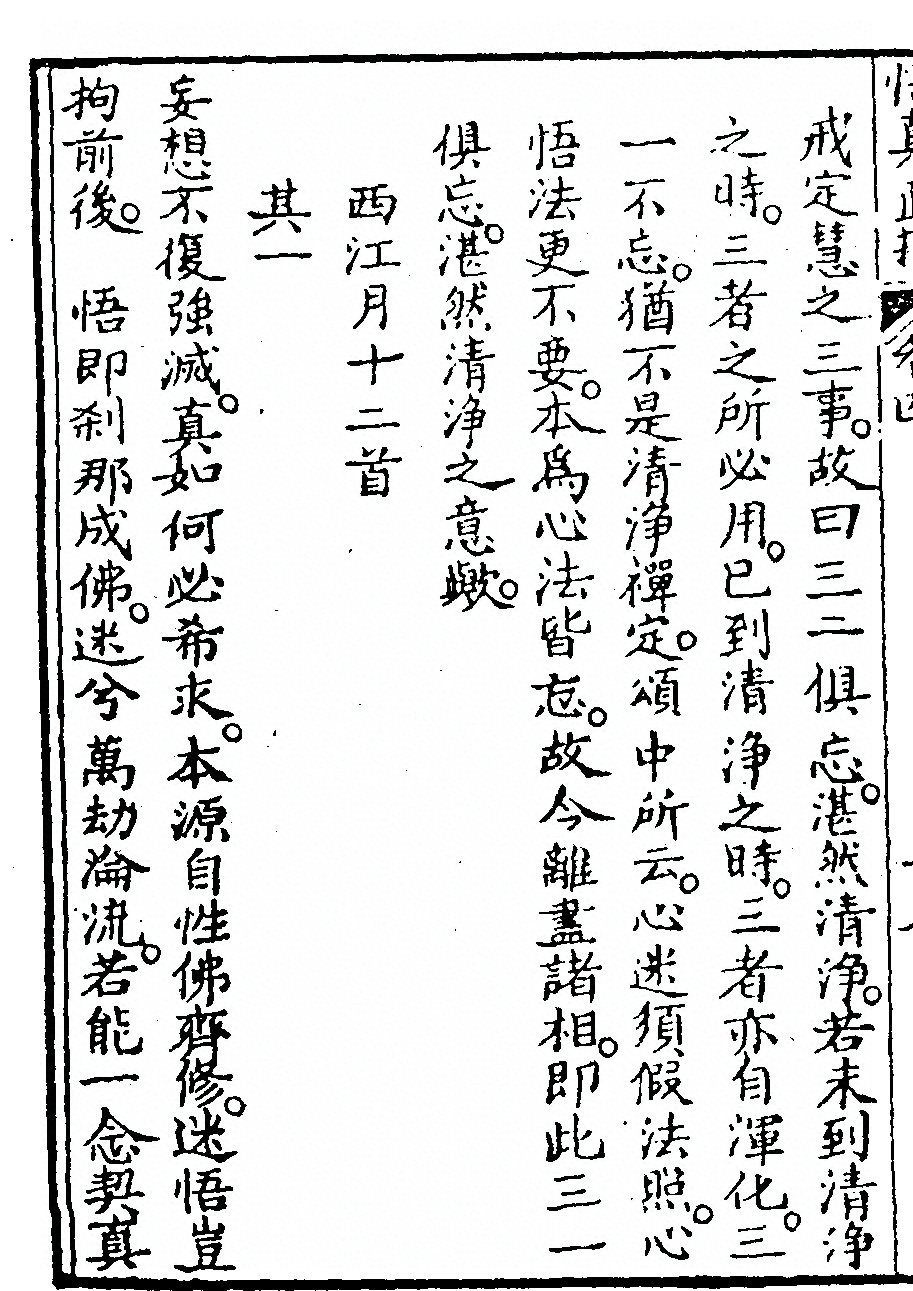 戒定慧之三事。故曰三二俱忘。湛然清淨。若未到清淨
之時。三者之所必用。已到清淨之時。三者亦自渾化。三
一不忘。猶不是清淨禪定。頌中所云。心迷須假法照。心
悟法更不要。本為心法皆忘。故今離盡諸相。即此三一
俱忘。湛然清淨之意歟。
西江月十二首
其一
妄想不復強滅。真如何必希求。本源自性佛齊修。迷悟豈
拘前後。　悟即剎那成佛。迷兮萬劫淪流。若能一念契真